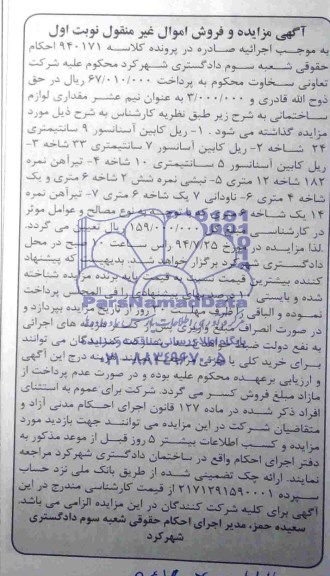 آگهی مزایده و فروش اموال غیر منقول نوبت اول
به موجب اجرائیه صادره در پرونده کلاسه ۹۴۰۱۷۱ احکام
حقوقی شعبه سوم دادگستری شهرکرد محکوم علیه شرکت
تعاونی سخاوت محکوم به پرداخت ۶۷/۰۱۰/۰۰۰ ریال در حق
ذوح الله قادری و ۳/۰۰۰/۰۰۰ به عنوان نیم عشر مقداری لوازم
ساختمانی به شرح زیر طبق نظریه کارشناس به شرح ذیل مورد
مزایده گذاشته می شود . ۱- ریل کابین آسانسور ۹ سانتیمتری
۲۴ شاخه ۲- ریل کابین آسانور ۷ سانتیمتری ۳۳ شاخه ۳-
ریل کابین آسانسور ۵ سانتیمتری ۱۰ شاخه ۴- تیرآهن نمره
۱۸۲ شاخه ۱۲ متری ۵- نبشی نمره شش ۲ شاخه ۶ متری و یک
شاخه ۴ متری ۶- ناودانی ۷ یک شاخه ۶ متری ۷- تیرآهن نمره
۱۴ یک شاخه با توجه به نوع مصالح و عوامل موثر
در کارشناسی ۱۵۹/۰۰۰/۰۰۰ ریال تعیین می گردد.
لذا مزایده در مورخ ۹۴/۷/۲۵ راس ساعت صبح در محل
دادگستری شهرکرد برگزار خواهد شد. بدیهیست که پیشنهاد
کننده بیشترین قیمت نسبت به قیمت پایه برنده مزایده شناخته
شده و بایستی پیشنهادی را فی المجلس پرداخت
نموده و الباقی را ظرف مهلت روز از تاریخ مزایده بپردازد و
در صورت انصراف
به نفع دولت ضبط شرکت کنندگان می توانند
برای خرید کلی یا درج این آگهی
و ارزیابی برعهده محکوم علیه بوده و در صورت عدم پرداخت از
مازاد مبلغ فروش کسر می گردد. شرکت برای عموم به استثنای
افراد ذکر شده در ماده ۱۲۷ قانون اجرای احکام مدنی آزاد و
متقاضیان شرکت در این مزایده می توانند جهت بازدید مورد
مزایده و کسب اطلاعات بیشتر ۵ روز قبل از موعد مذکور به
دفتر اجرای احکام واقع در ساختمان دادگستری شهرکرد مراجعه
نمایند. ارائه چک تضمینی شده از طریق بانک ملی نزد حساب
سپرده ۲۱۷۱۲۹۱۵۹۰۰۰۱ از قیمت کارشناسی مندرج در این
آگهی برای کلیه شرکت کنندگان در این مزایده الزامی می باشد.
سعیده حمز، مدیر اجرای احکام حقوقی شعبه سوم دادگستری
شهرکرد
ParsNamadData
۰۲۱-۸۸۳۴۹۶۷۰-۵